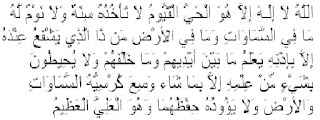 اللهُ لا إِلَـهَ إِلاَّ هُوَ الْحَيُّ الْقَيُّومُ لاَ تَأْخُذُهُ سِنَةٌ وَلاَ نَوْمٌ لَّهُ
مَا فِي السَّمَاوَاتِ وَمَا فِي الأَرْضِ مَن ذَا الَّذِي يَشْفَعُ عِنْدَهُ
إِلاَّ بِإِذْنِهِ يَعْلَمُ مَا بَيْنَ أَيْدِيهِمْ وَمَا خَلْفَهُمْ وَلاَ يُحِيطُونَ
بِشَيْءٍ مِّنْ عِلْمِهِ إِلاَّ بِمَا شَاء وَسِعَ كُرْسِيُّهُ السَّمَاوَاتِ
وَالأَرْضَ وَلاَ يَؤُودُهُ حِفْظُهُمَا وَهُوَ الْعَلِيُّ الْعَظِيمُ